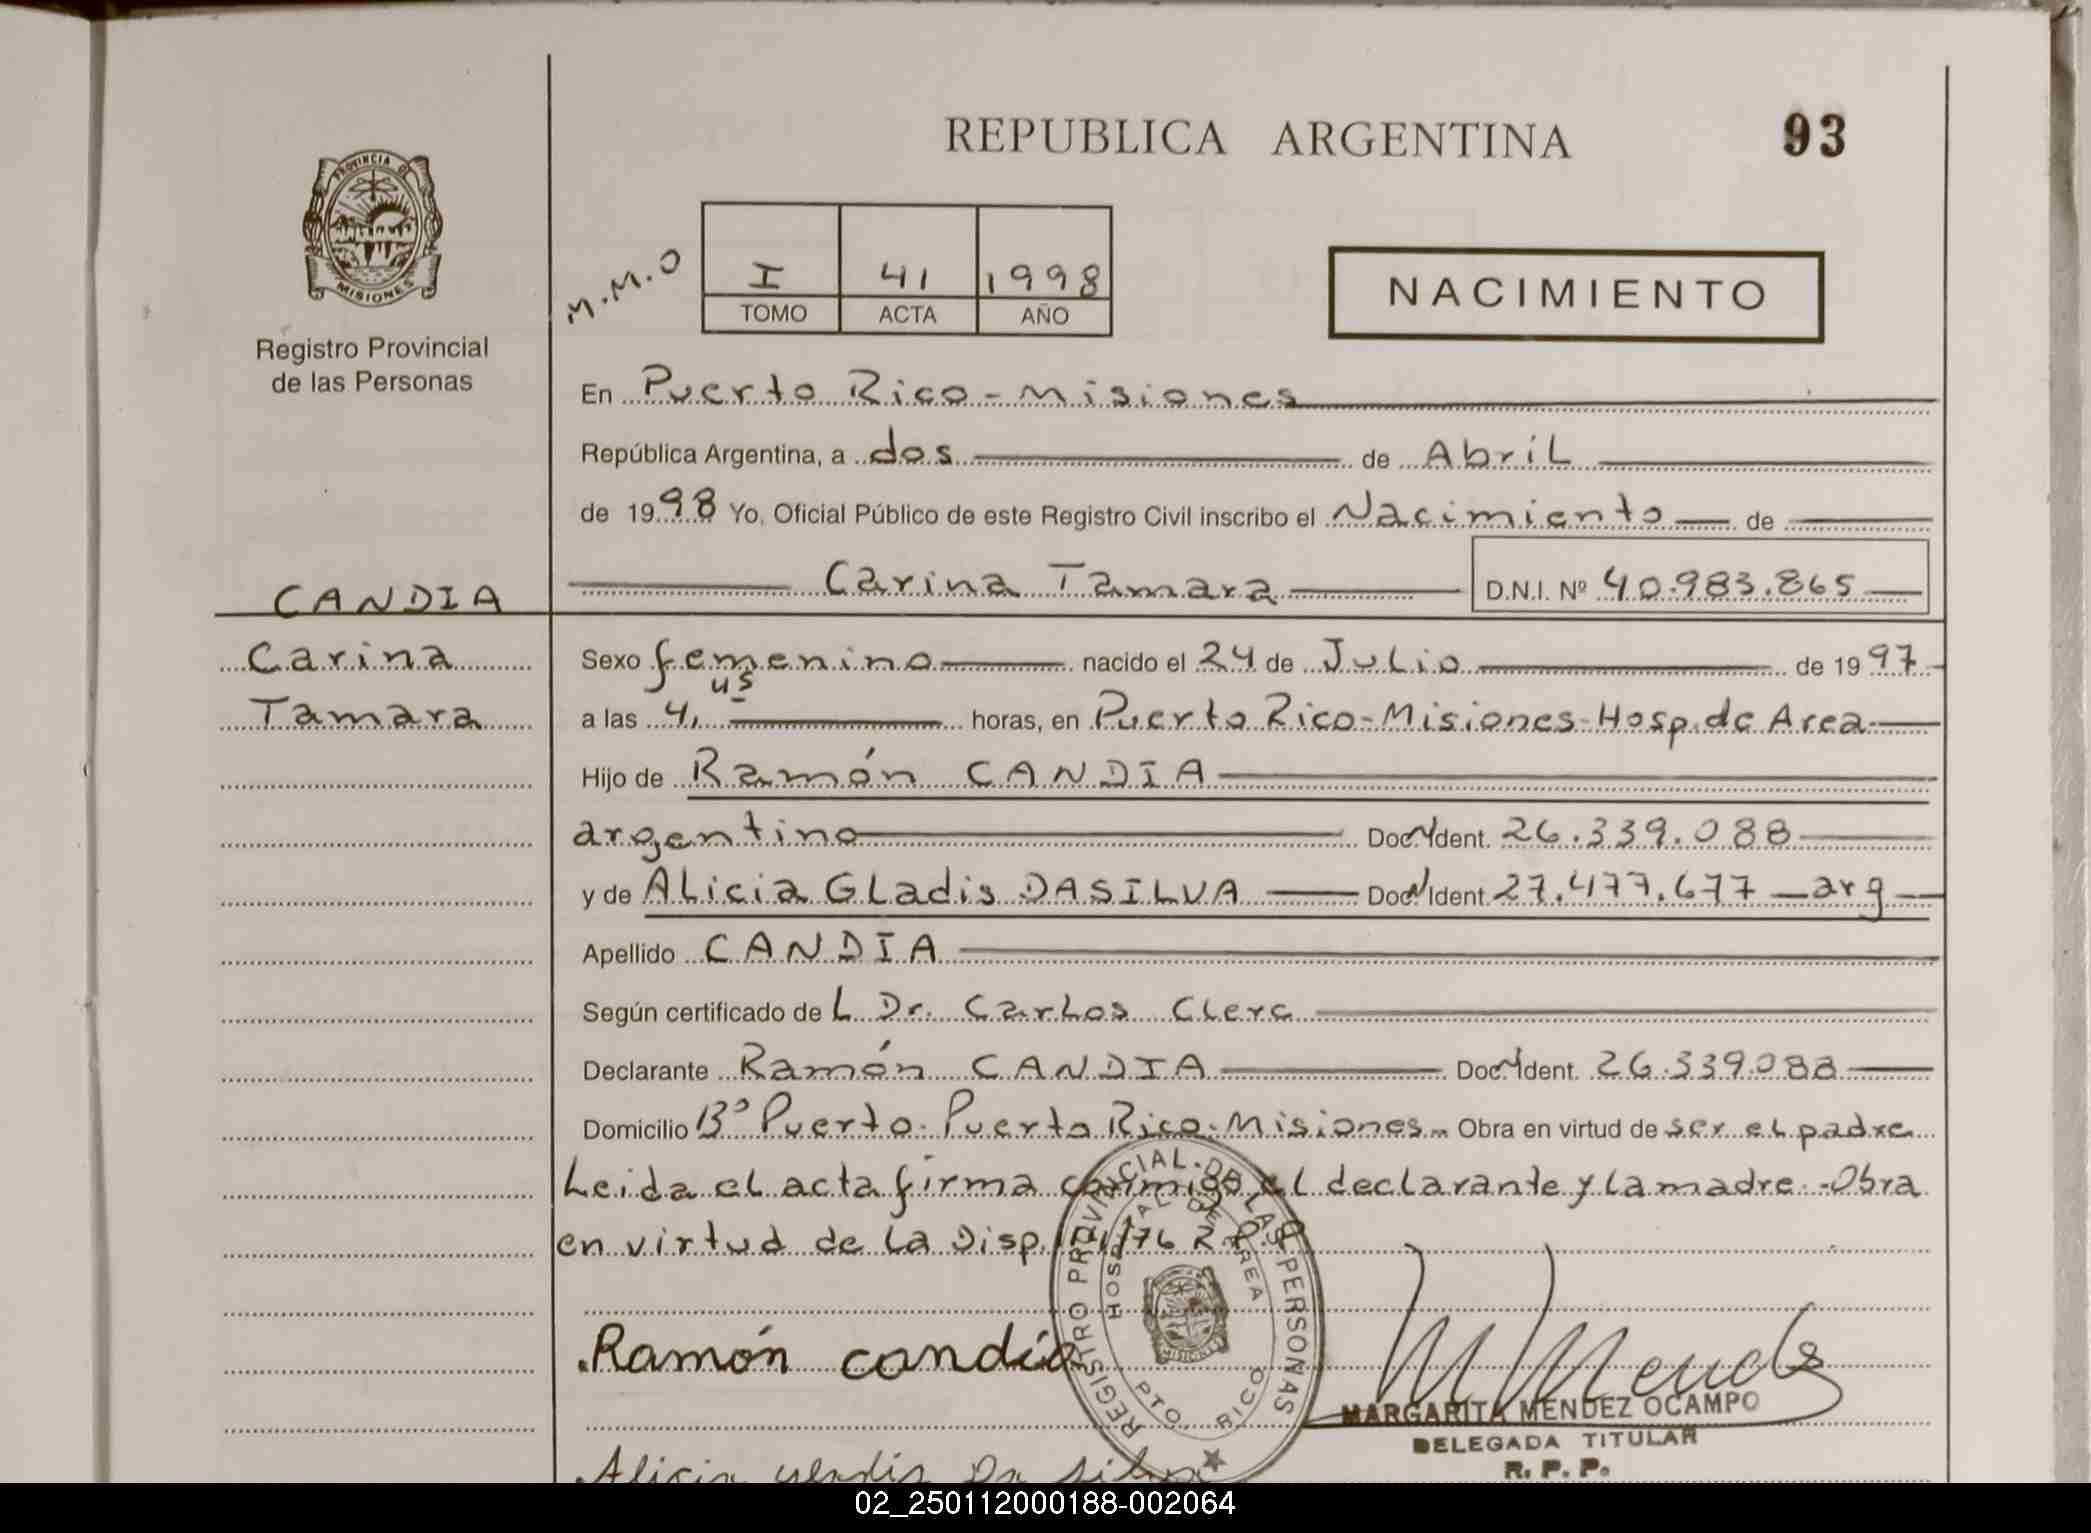 REPUBLICA ARGENTINA
93
PROVINCIA DE
MISIONES
Registro Provincial
de las Personas
M.M.O
I 41 1998
TOMO ACTA AÑO
NACIMIENTO
En Puerto Rico - Misiones
República Argentina, a dos de Abril
de 1998 Yo, Oficial Público de este Registro Civil inscribo el Nacimiento de
Carina Tamara D.N.I. Nº 40.983.865
CANDIA
Carina
Tamara
Sexo femenino nacido el 24 de Julio de 1997
a las 4,45 horas, en Puerto Rico - Misiones - Hosp. de Area
Hijo de Ramón CANDIA
argentino Doc. Ident. 26.339.088
y de Alicia Gladis DASILVA Doc. Ident. 27.477.677 - arg
Apellido CANDIA
Según certificado de L Dr. Carlos Clerc
Declarante Ramón CANDIA Doc. Ident. 26.339.088
Domicilio Bº Puerto - Puerto Rico - Misiones Obra en virtud de ser el padre
Leida el acta firma conmigo el declarante y la madre - Obra
en virtud de la Disp. /76 R.P.P
REGISTRO PROVINCIAL DE LAS PERSONAS
HOSPITAL DE AREA
PTO RICO
MISIONES
Ramón candia
M Mendez
MARGARITA MENDEZ OCAMPO
DELEGADA TITULAR
R. P. P.
Alicia gladis Da silva
02_250112000188-002064